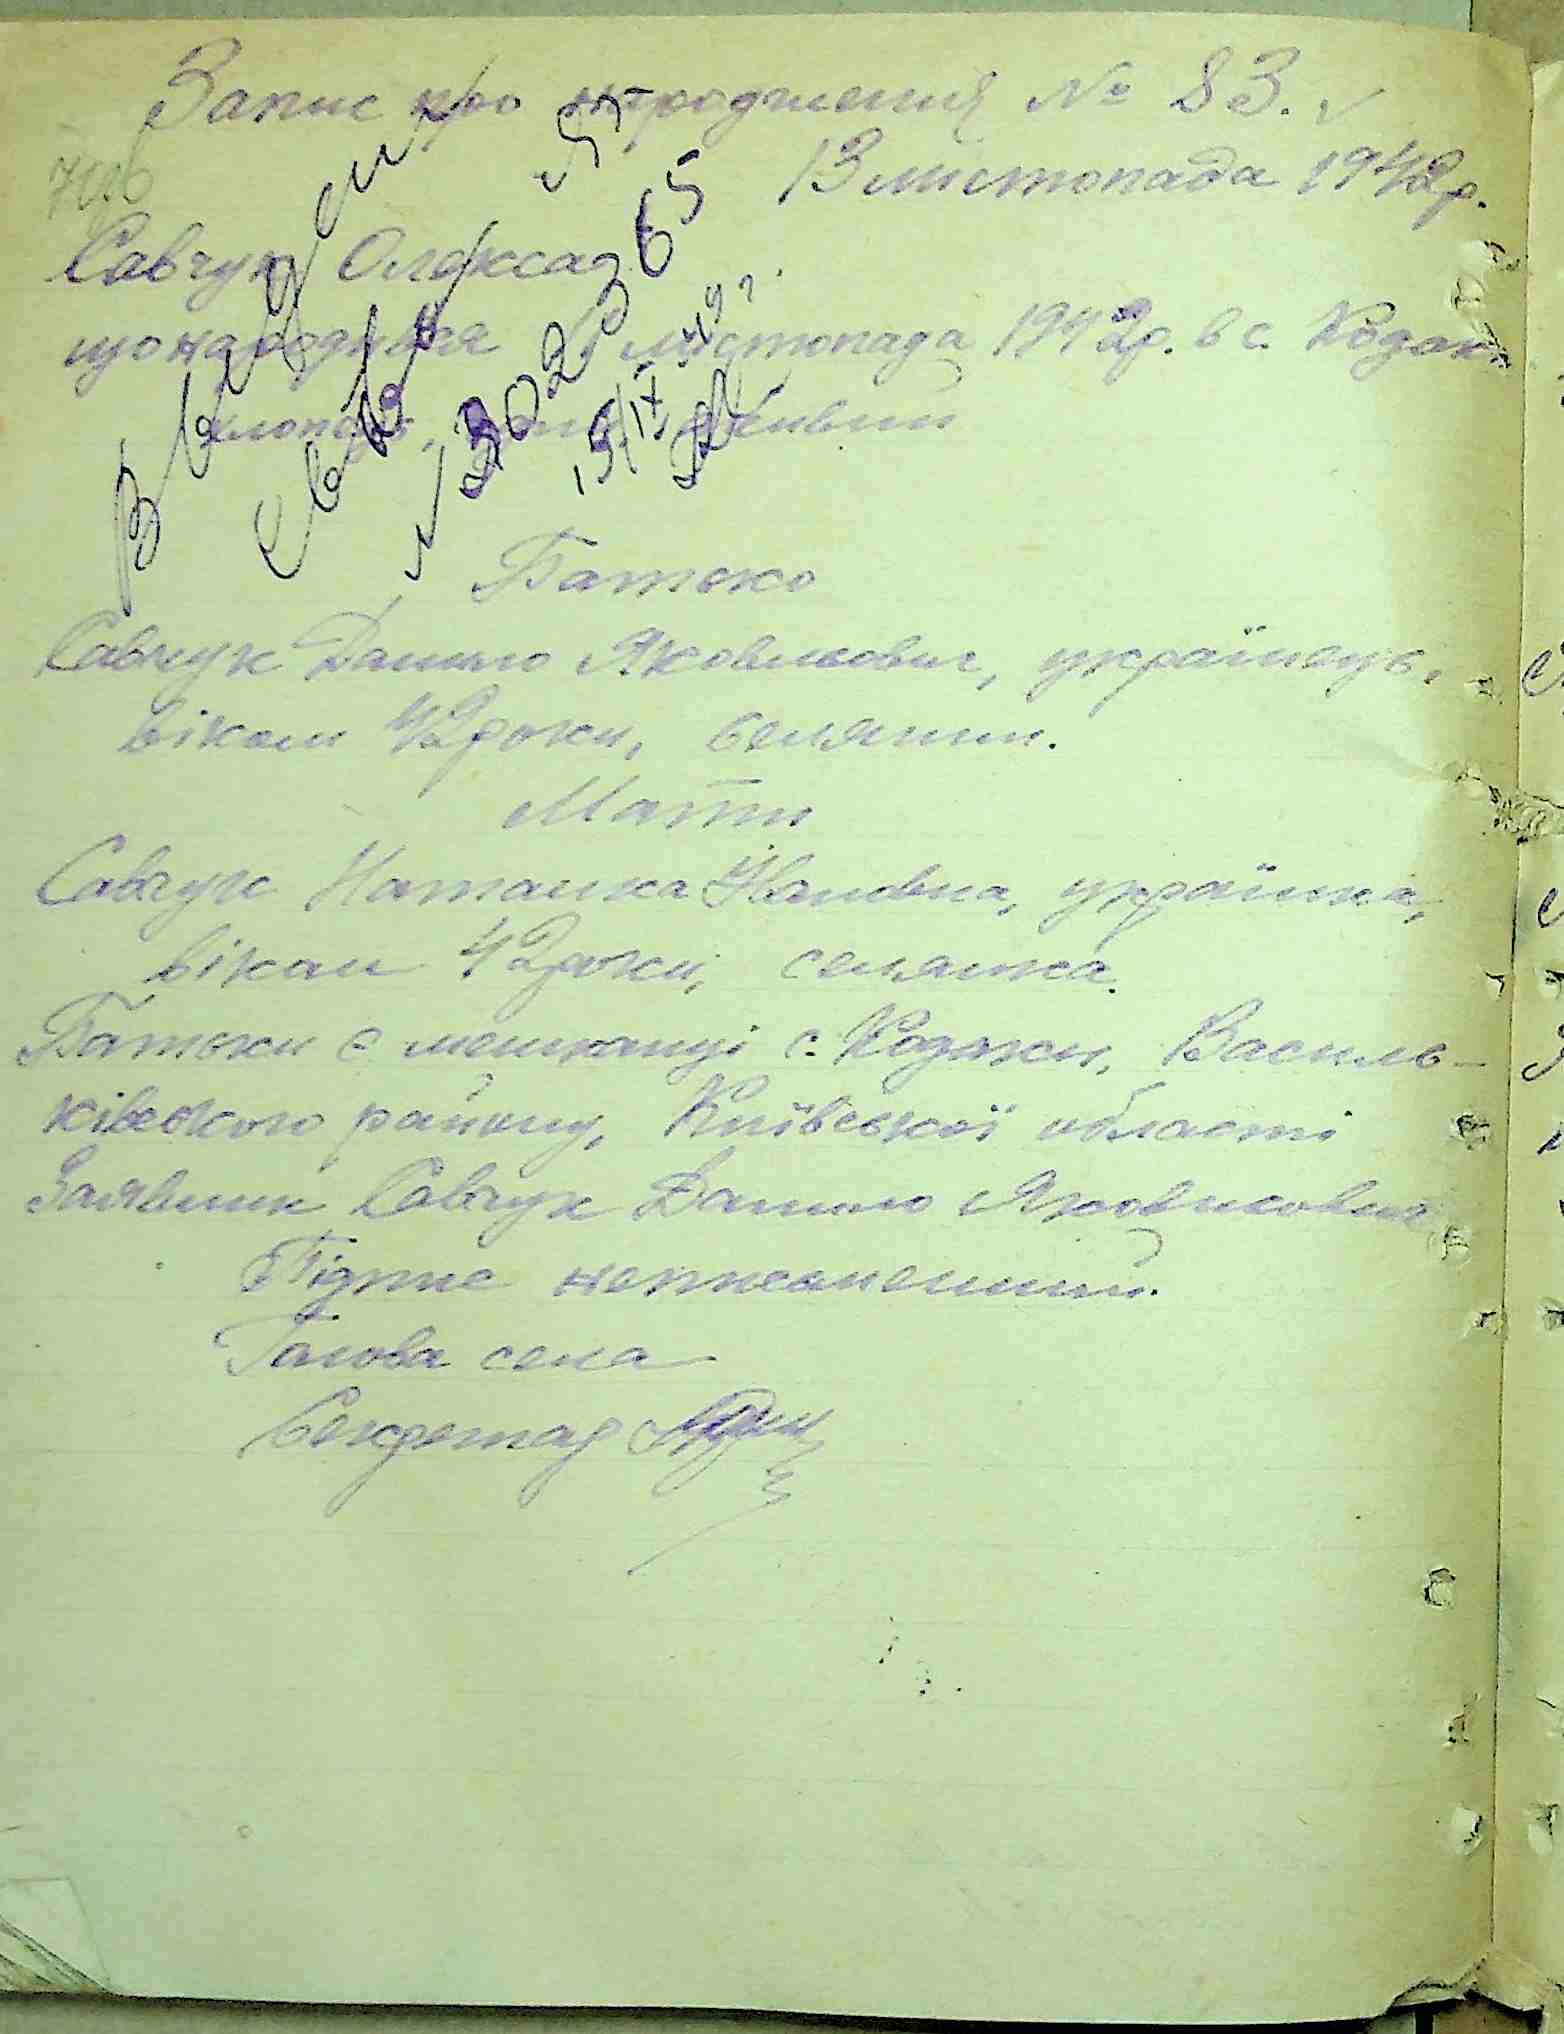 Запис про народження № 83.
13 листопада 1942р.
Савчук Олександ
що народився листопада 1942р. в с. Кодаки
хлопець, живий
Батько
Савчук Данило Яковлевович, українець,
віком 42 роки, селянин.
Мати
Савчук Наталка Йванівна, українка,
віком 42 роки, селянка.
Батьки є мешканці с. Кодаки, Василь-
ківського району, Київської області
Заявник Савчук Данило Яковлевович
Підпис неписьменний.
Голова села
Секретар